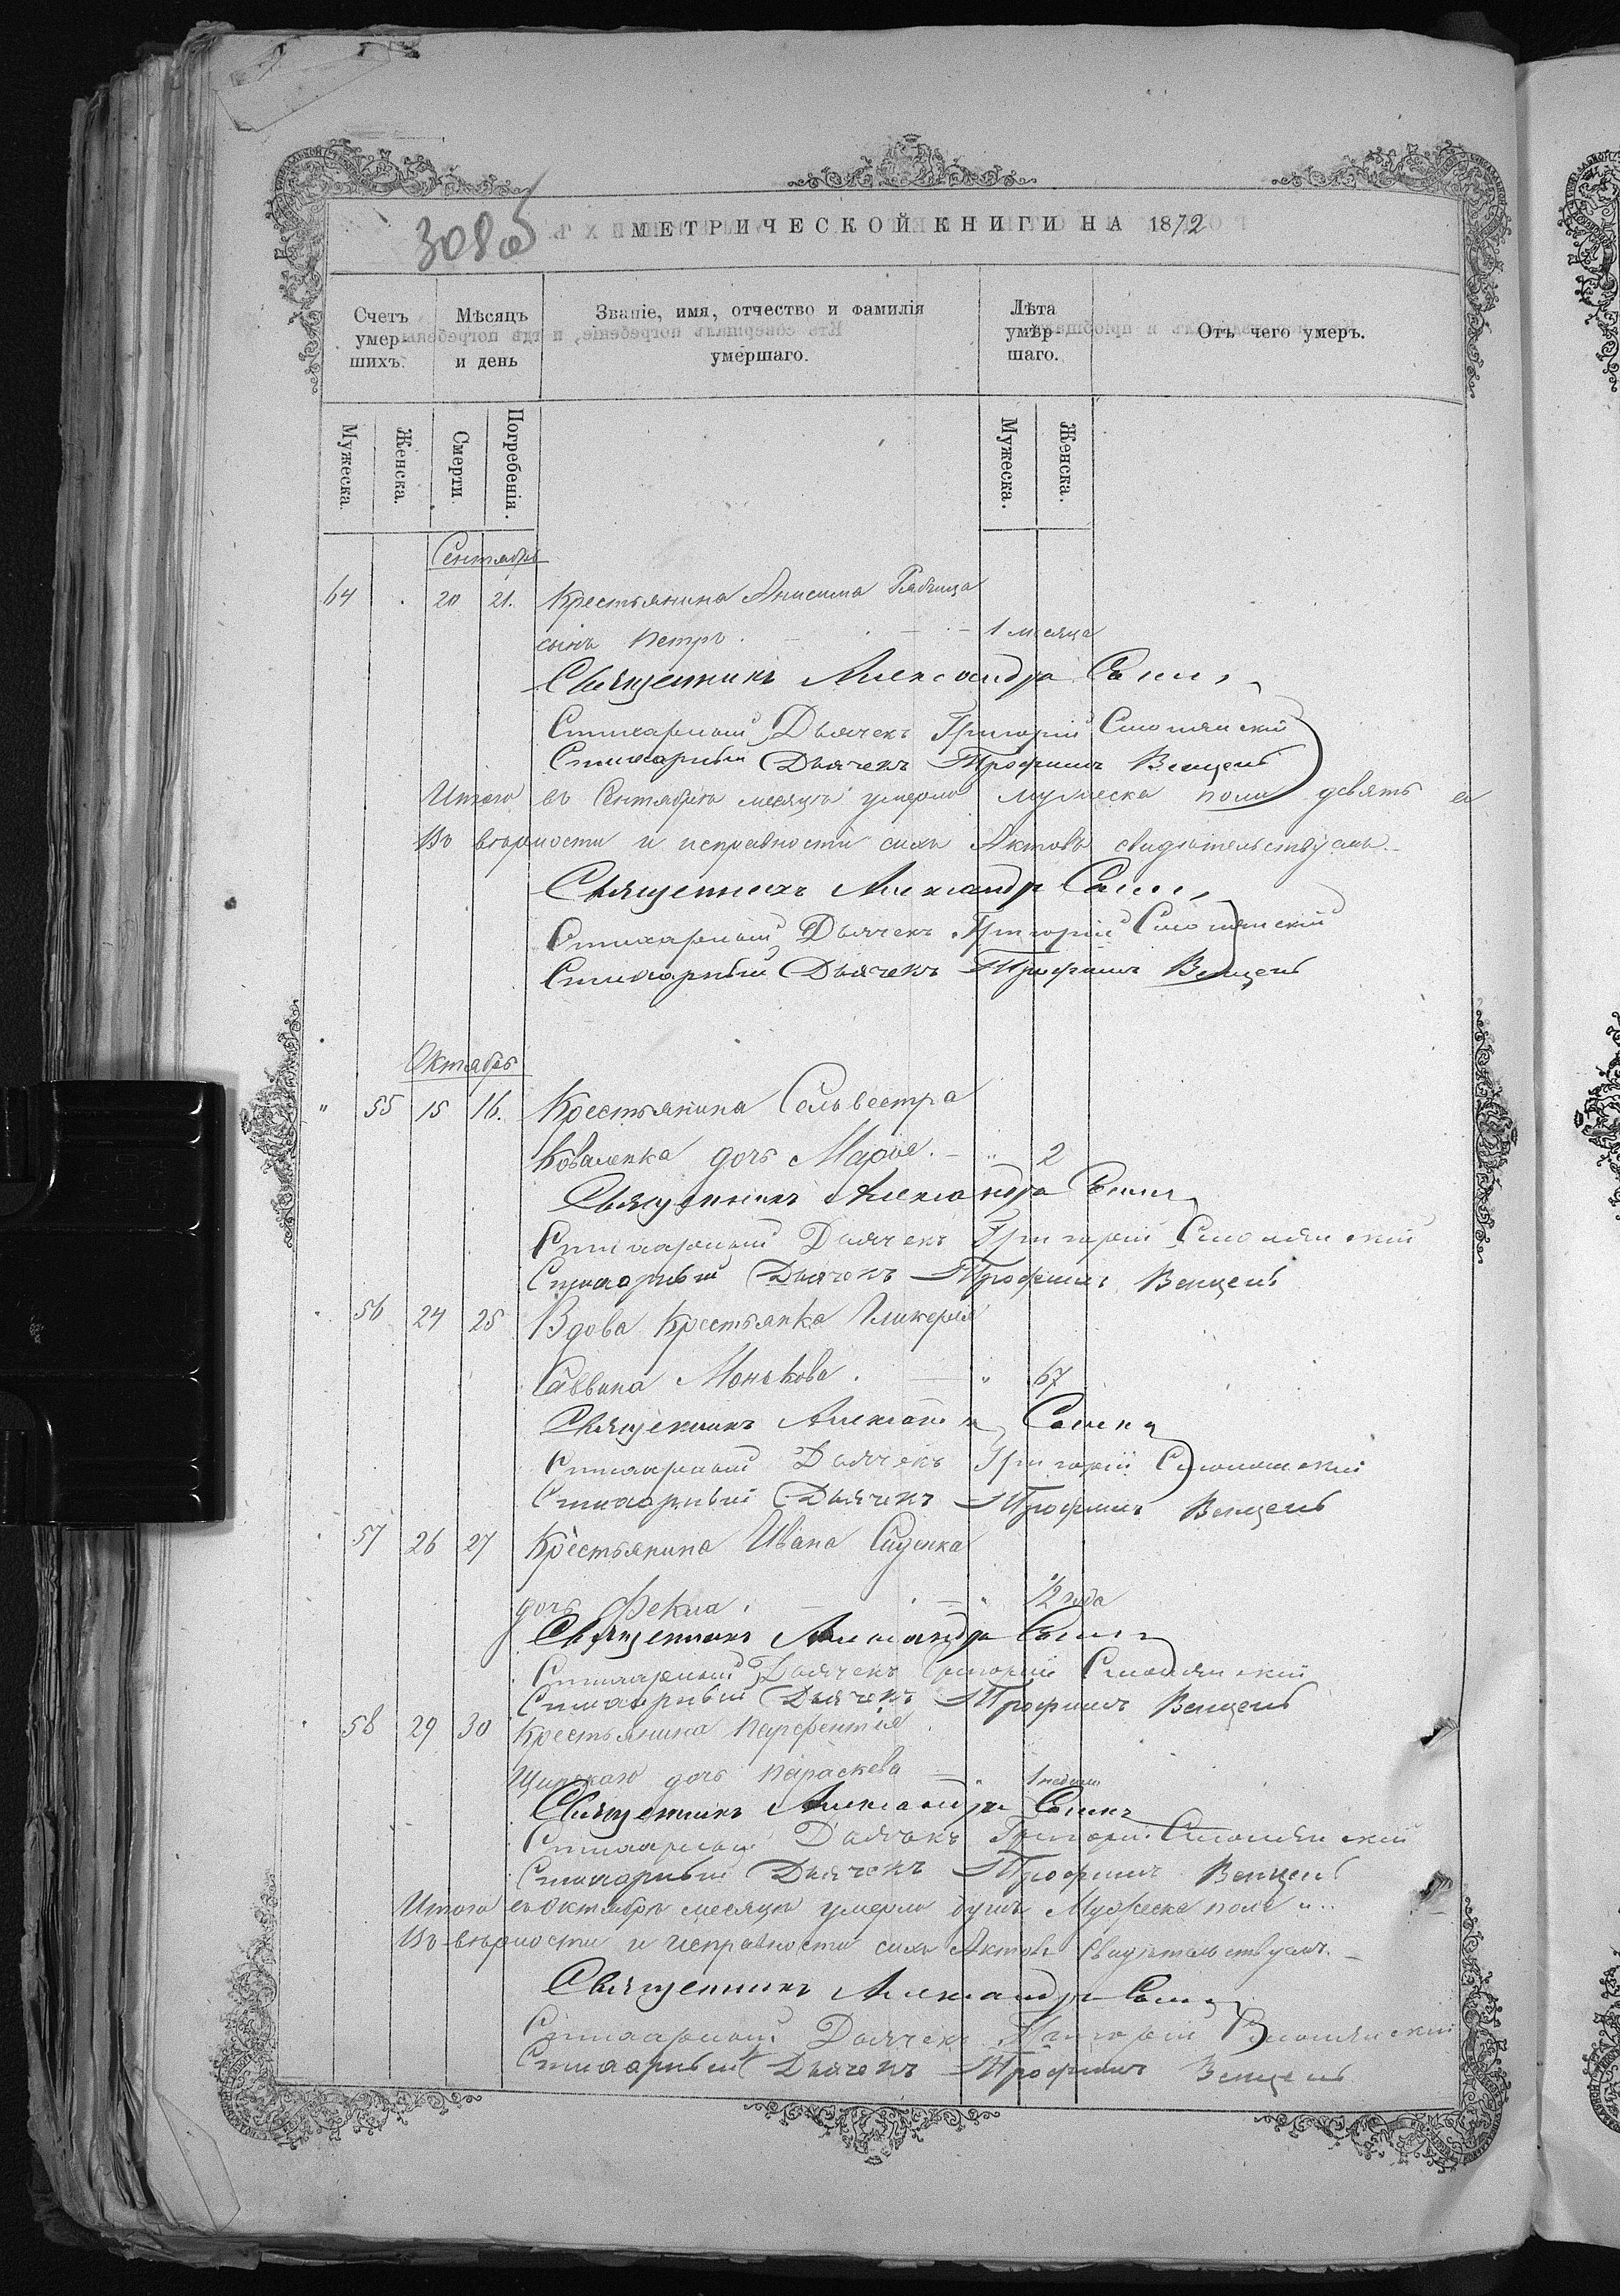 308об
МЕТРИЧЕСКОЙ КНИГИ НА 1872
Счетъ умер- шихъ.
Мѣсяцъ и день
Званіе, имя, отчество и фамилія умершаго.
Лѣта умѣр- шаго.
Отъ чего умеръ.
Мужеска.
Женска.
Смерти
Погребенія.
Мужеска.
Женска.
Сентябрь
64 20 21. Крестьянина Анисима
сынъ Петръ. 1 месяца
Священникъ Александръ
Стихарный Дьячекъ Григорій
Стихарный Дьячекъ Трофимъ Венцель
Итого въ Сентябрѣ месяцѣ умерло мужеска пола девять
Въ вѣрности и исправности сихъ Актовъ свидѣтельствуемъ.
Священникъ Александръ
Стихарный Дьячекъ Григорій
Стихарный Дьячекъ Трофимъ Венцель
Октябрь
" 55 15 16. Крестьянина Сельвестра
Коваленка дочь Марія. " 2
Священникъ Александръ
Стихарный Дьячекъ Григорій
Стихарный Дьячекъ Трофимъ Венцель
56 24 25 Вдова Крестьянка Гликерія
Саввина Монькова. " 67
Священникъ
Стихарный Дьячекъ Григорій
Стихарный Дьячекъ Трофимъ Венцель
57 26 27 Крестьянина Ивана
дочь Фекла. " 1/2 года
Священникъ Александръ
Стихарный Дьячекъ Григорій
Стихарный Дьячекъ Трофимъ Венцель
58 29 30 Крестьянина Парфентія
дочь Параскева "
Священникъ Александръ
Стихарный Дьячекъ Григорій
Стихарный Дьячекъ Трофимъ Венцель
Итого въ Октябрѣ месяцѣ умерло душъ Мужеска пола "
Въ вѣрности и исправности сихъ Актовъ свидѣтельствуемъ.
Священникъ Александръ
Стихарный Дьячекъ Григорій
Стихарный Дьячекъ Трофимъ Венцель